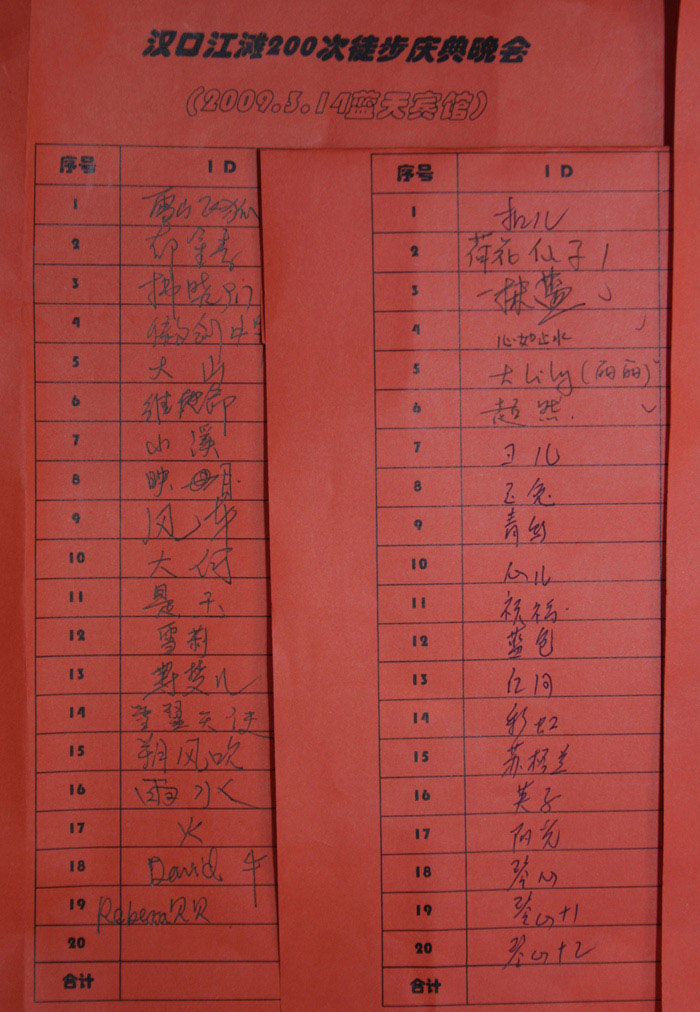 汉口江滩200次徒步庆典晚会
(2009.3.14蓝天宾馆)
序号 ID
1 雪山飞狐
2 郁金香
3 拂晓
4
5 大山
6 维也纳
7 小溪
8 映月
9 风车
10 大何
11 是天
12 雪莉
13 梦儿
14 重翼天使
15 朔风吹
16 雨水
17 火
18 David 牛
19 Rebecca贝贝
20
合计
序号 ID
1 扣儿
2 荷花仙子
3 一抹蓝
4 心如止水
5 大Lily(丽丽)
6 超然
7 儿
8 玉兔
9 青鸟
10 心儿
11 祝福
12 蓝色
13
14 彩虹
15 苏格兰
16 英子
17 阳光
18 琴心
19 琴心+1
20 琴心+2
合计